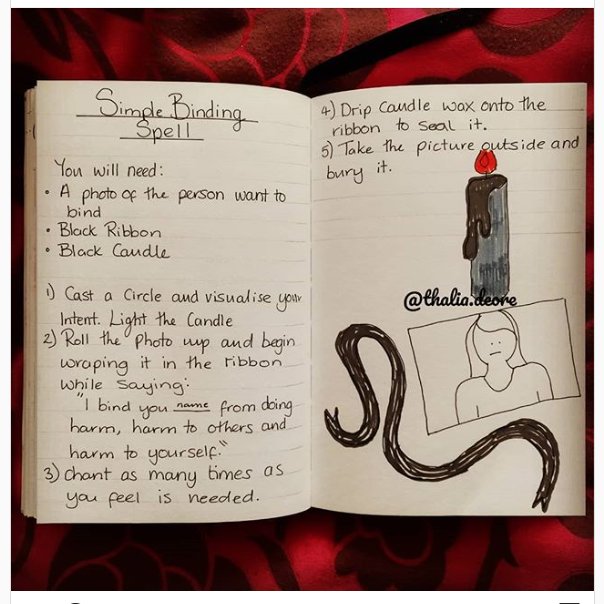 Simple Binding
Spell
You will need:
• A photo of the person want to
bind
• Black Ribbon
• Black Candle
1) Cast a Circle and visualise your
Intent. Light the Candle
2) Roll the Photo uup and begin
wraping it in the ribbon
while saying:
"I bind you name from doing
harm, harm to others and
harm to yourself."
3) Chant as many times as
you feel is needed.
4) Drip Candle wax onto the
ribbon to seal it.
5) Take the picture outside and
bury it.
@thalia.deore